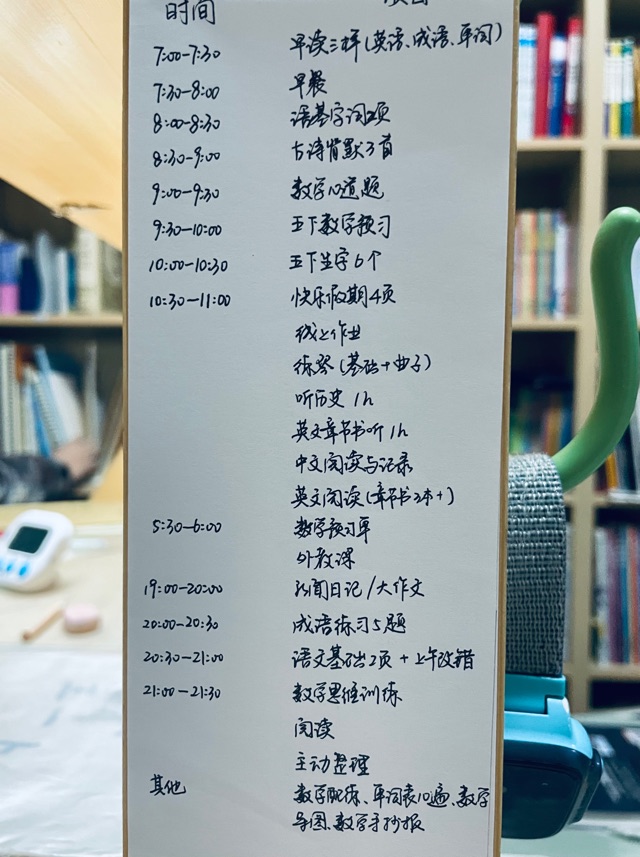 时间 项目
7:00-7:30 早读三样(英语、成语、单词)
7:30-8:00 早餐
8:00-8:30 语基字词2页
8:30-9:00 古诗背默3首
9:00-9:30 数学10道题
9:30-10:00 五下数学预习
10:00-10:30 五下生字6个
10:30-11:00 快乐假期4页
线上作业
练琴(基础+曲子)
听历史 1h
英文章节书听 1h
中文阅读与记录
英文阅读(章节书2本+)
5:30-6:00 数学预习单
外教课
19:00-20:00 新闻日记/大作文
20:00-20:30 成语练习5题
20:30-21:00 语文基础2页+上午改错
21:00-21:30 数学思维训练
阅读
主动整理
其他 数学配练、单词表10遍、数学
导图、数学手抄报